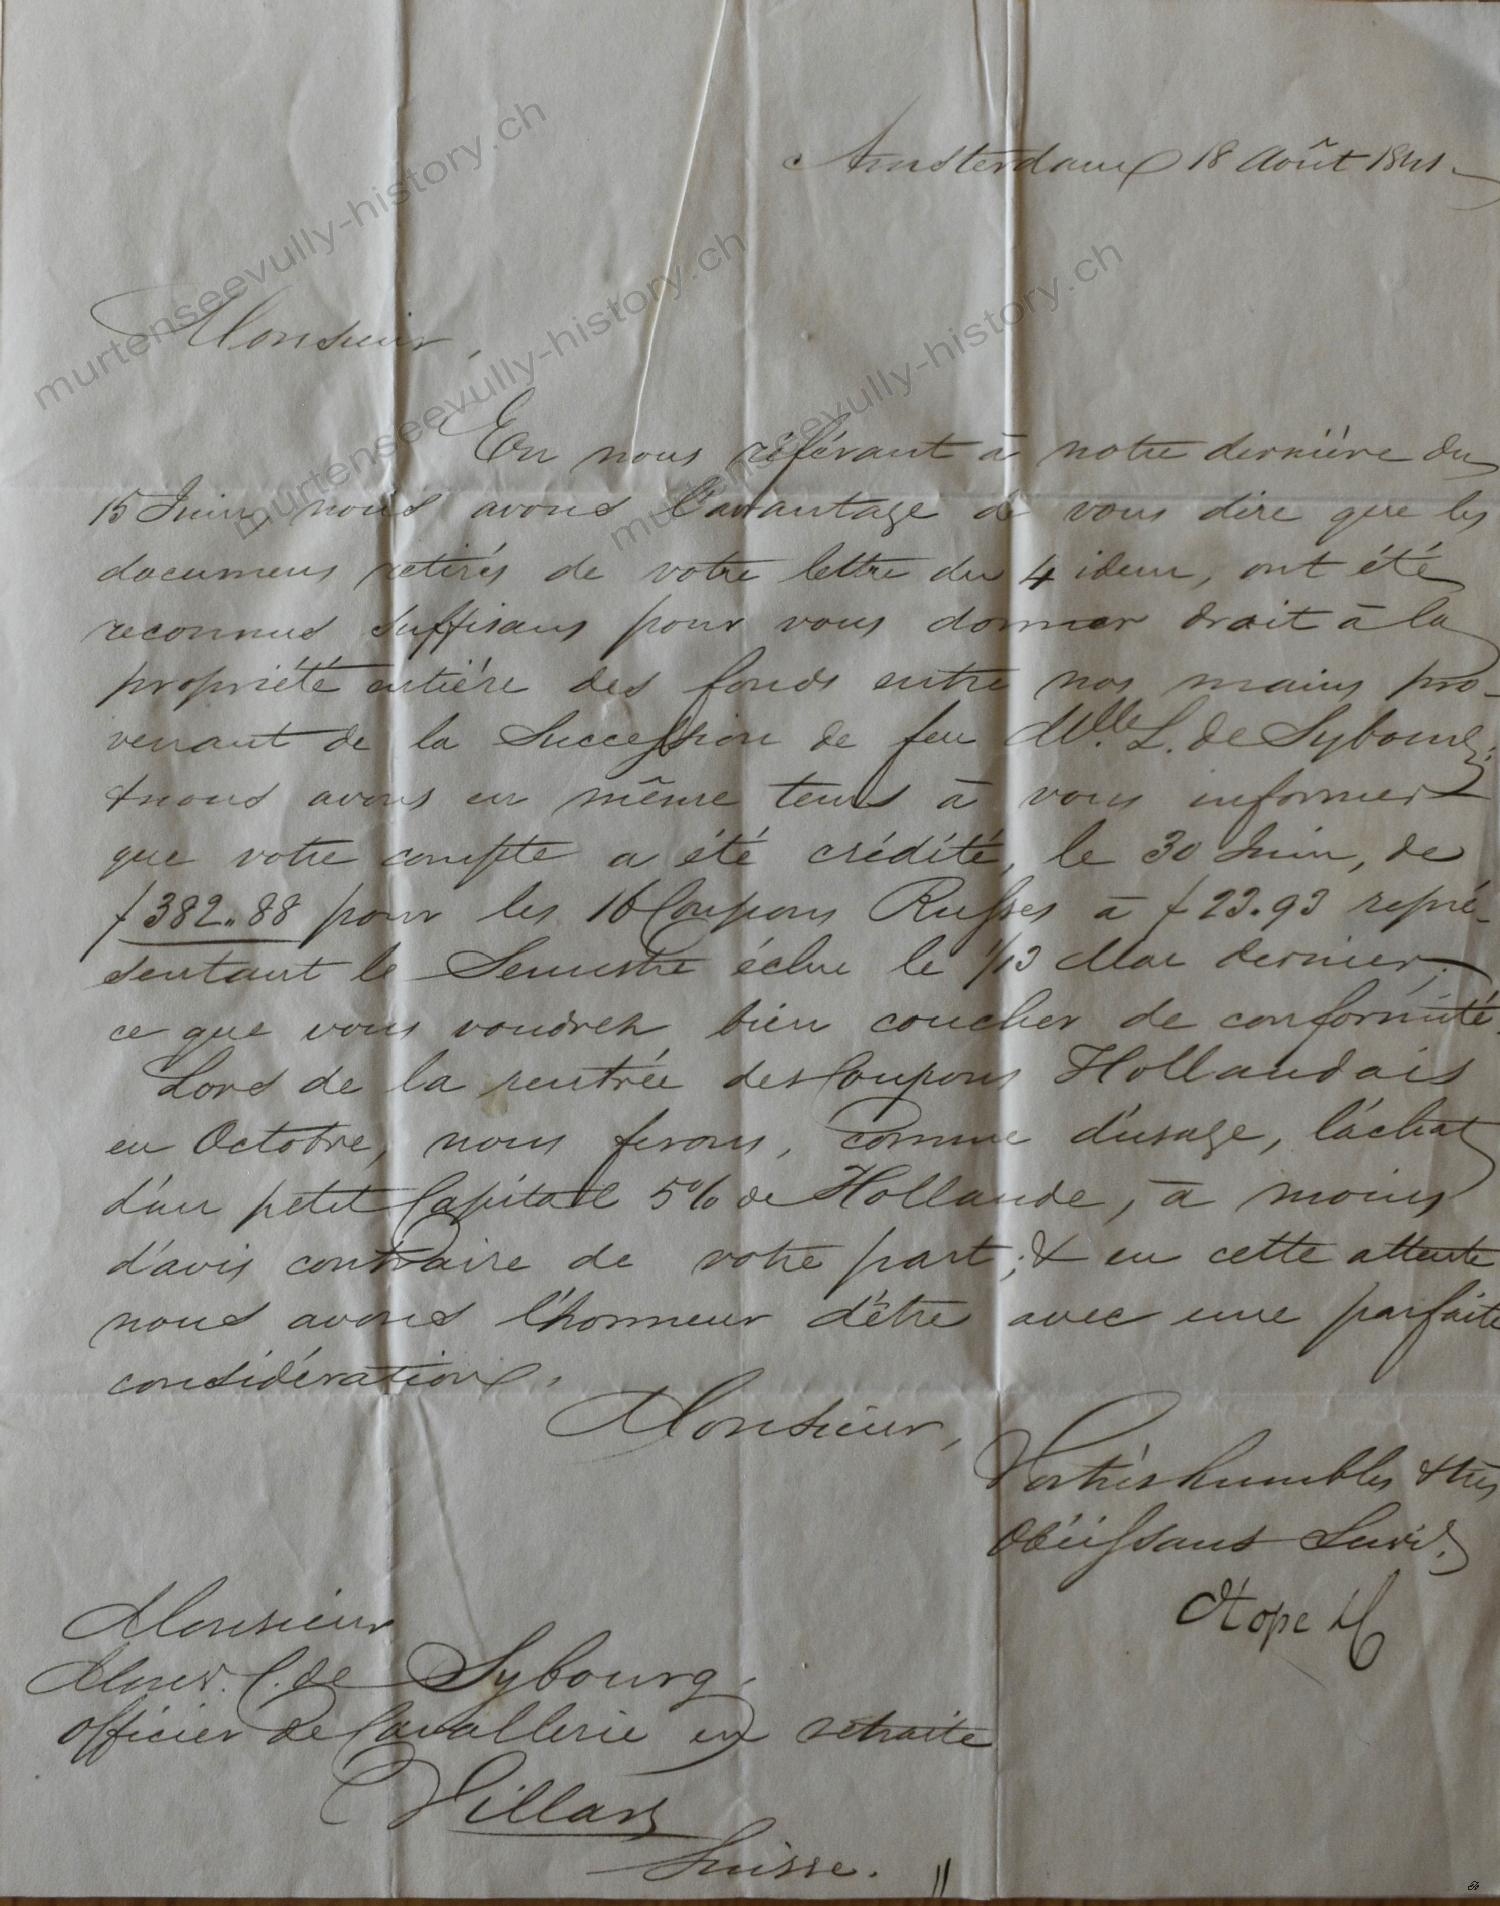 Amsterdam 18 Août 1841
Monsieur,
En nous référant à notre dernière du
15 Juin, nous avons l'avantage de vous dire que les
documens retirés de votre lettre du 4 idem, ont été
reconnus suffisans pour vous donner droit à la
propriété entière des fonds entre nos mains pro-
venant de la Succession de feu Mlle. L. de Sybourg;
& nous avons en même tems à vous informer
que votre compte a été crédité, le 30 Juin, de
f 382.88 pour les 16 Coupons Russes à f 23.93 repré-
sentant le Semestre échu le 1/13 Mai dernier;
ce que vous voudrez bien coucher de conformité.
Lors de la rentrée des Coupons Hollandais
en Octobre, nous ferons, comme d'usage, l'achat
d'un petit Capital 5% de Hollande, à moins
d'avis contraire de votre part; & en cette attente
nous avons l'honneur d'être avec une parfaite
considération,
Monsieur,
Vos très humbles & très
Obéissans Servrs.
Hope &C
Monsieur
Monsr. C. de Sybourg.
officier de Cavallerie en retraite
Villars
Suisse.
murtenseevully-history.ch
murtenseevully-history.ch
murtenseevully-history.ch